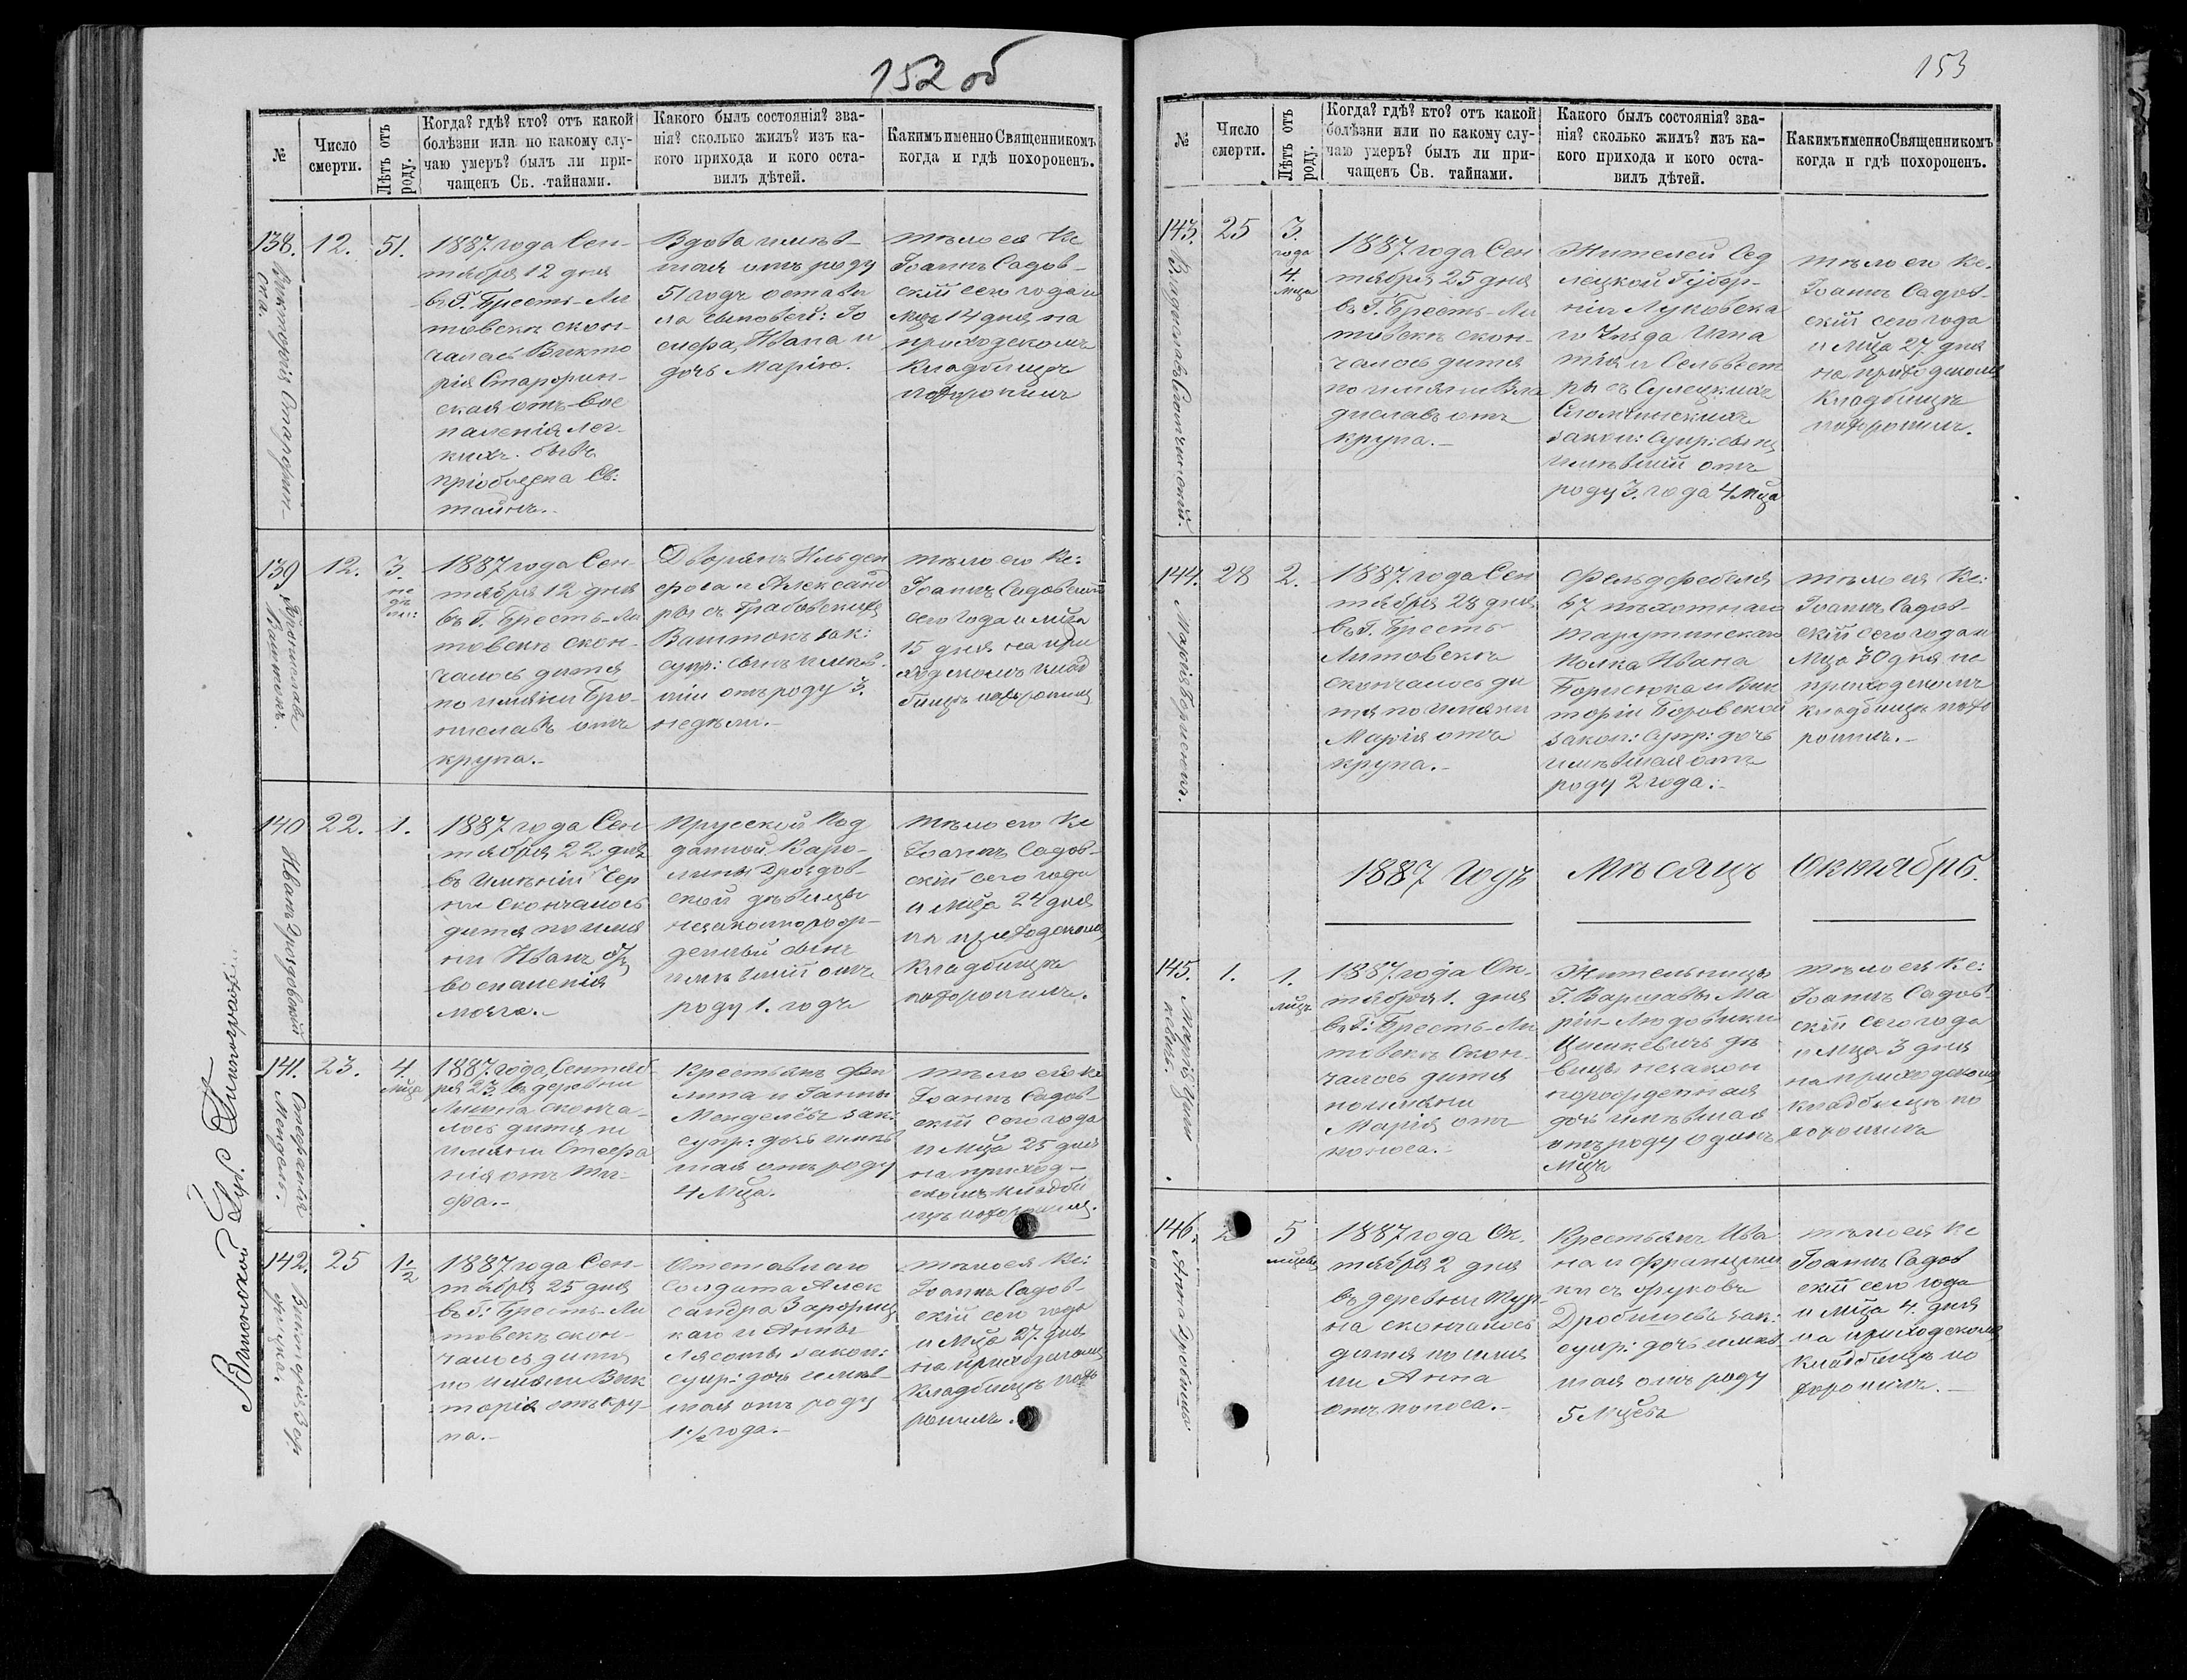 152 об
№
Число
смерти.
Лѣтъ отъ
роду.
Когда? гдѣ? кто? отъ какой
болѣзни или по какому слу-
чаю умеръ? былъ ли при-
чащенъ Св. тайнами.
Какого былъ состоянія? зва-
нія? сколько жилъ? изъ ка-
кого прихода и кого оста-
вилъ дѣтей.
Какимъ именно Священникомъ
когда и гдѣ похороненъ.
138.
12.
51.
1887 года Сен-
тября 12 дня
въ Г. Брестъ-Ли
товскѣ скон-
чалась Викто
рія
отъ вос
паленія лег-
кихъ. бывъ
пріобщена Св:
таинъ.
Вдова имѣв-
шая отъ роду
51 годъ остави
ла сыновей: Іо
сифа, Ивана и
дочь Марію.
тѣло ея Кс
Іоаннъ Садов-
скій сего года и
Мца 14 дня на
приходскомъ
Кладбищѣ
похоронилъ
139
12.
3.
не
дѣ
ли:
Брониславъ
1887 года Сен-
тября 12 дня
въ Г. Брестъ-Ли
товскѣ скон-
чалось дитя
по имяни Бро-
ниславъ отъ
крупа.-
Дворянъ Ильден
фоса и Александ
ры съ Грабовскихъ
зак:
супр: сынъ имѣв-
шій отъ роду 3.
недѣли.-
тѣло его Кс:
Іоаннъ Садовскій
сего года и мца
15 дня на при
ходскомъ клад
бищѣ похоронилъ
140
22.
1.
Иванъ Дроздовскій
1887 года Сен
тября 22 дня
въ Имѣніи Чер
ни скончалось
дитя по имя
ни Иванъ отъ
воспаленія
мозга.-
Прусской Под
данной Каро-
лины Дроздов-
ской дѣвицы
незаконнорож-
денный сынъ
имѣвшій отъ
роду 1. годъ
тѣло его Кс
Іоаннъ Садов-
скій сего года
и Мца 24 дня
на приходскомъ
Кладбищѣ
похоронилъ.
141.
23.
4.
Мца
Стефанія
1887 года Сентяб-
ря 23. въ деревни
сконча-
лось дитя по
имяни Стефа
нія отъ ти-
фа.-
Крестьянъ Фи
липа и Ганны
зак:
супр: дочь имѣв
шая отъ роду
4 Мца.
тѣло ея Кс
Іоаннъ Садов-
скій сего года
и Мца 25 дня
на приход-
скомъ кладби
щѣ похоронилъ.
142.
25
1 1/2
Викторія
1887 года Сен-
тября 25 дня
въ г: Брестъ-Ли
товскѣ скон-
чалось дитя
по имяни Вик
торія отъ кру-
па.-
Отставнаго
Солдата Алек
сандра
и Анны
закон:
супр: дочь имѣв-
шая отъ роду
1 1/2 года.-
тѣло ея Кс:
Іоаннъ Садов-
скій сего года
и Мца 27. дня
на приходскомъ
Кладбищѣ похо
ронилъ.
153
№
Число
смерти.
Лѣтъ отъ
роду.
Когда? гдѣ? кто? отъ какой
болѣзни или по какому слу-
чаю умеръ? былъ ли при-
чащенъ Св. тайнами.
Какого былъ состоянія? зва-
нія? сколько жилъ? изъ ка-
кого прихода и кого оста-
вилъ дѣтей.
Какимъ именно Священникомъ
когда и гдѣ похороненъ.
143.
25
3.
года
4.
Мца
1887 года Сен
тября 25 дня
въ Г. Брестъ-Ли
товскѣ скон-
чалось дитя
по имяни Вла
диславъ отъ
крупа.-
Жителей Сѣд
лецкой Губер-
ніи Луковска
го Уѣзда Игна
тія и Сельвест
ры съ
закон: Супр: сынъ
имѣвшій отъ
роду 3. года 4 Мца
тѣло его Кс.
Іоаннъ Садов-
скій сего года
и Мца 27. дня
на приходскомъ
Кладбищѣ
похоронилъ.
144.
28
2.
Марія Борисюкъ.
1887 года Сен
тября 28 дня
въ Г. Брестъ
Литовскѣ
скончалось ди
тя по имяни
Марія отъ
крупа.-
Фельдфебеля
67 пѣхотнаго
Тарутинскаго
Полка Ивана
Борисюка и Вик
торіи Боровской
закон: Супр: дочь
имѣвшая отъ
роду 2 года.-
тѣло ея Кс:
Іоаннъ Садов-
скій сего года и
Мца 30 дня на
приходскомъ
кладбищѣ похо
ронилъ.-
1887 Годъ Мѣсяцъ Октябрь.
145.
1.
1.
Мцъ
1887 года Ок-
тября 1. дня
въ Г: Брестъ-Ли
товскѣ скон-
чалось дитя
по имяни
Марія отъ
поноса.-
Жительницы
Г. Варшавы Ма
ріи-Людовики
дѣ
вицы незакон
норожденная
дочь имѣвшая
отъ роду одинъ
Мцъ
тѣло ея Кс:
Іоаннъ Садов-
скій сего года
и Мца 3 дня
на приходскомъ
кладбищѣ по
хоронилъ
146.
5
мцевъ
1887 года Ок-
тября 2 дня
въ деревни Тур-
на скончалось
дитя по имя
ни Анна
отъ поноса.-
Крестьянъ Ива
на и Францишки
зак:
супр: дочь имѣв
шая отъ роду
5 Мцевъ
тѣло ея Кс
Іоаннъ Садов
скій сего года
и Мца 4. дня
на приходскомъ
кладбищѣ по
хоронилъ.-